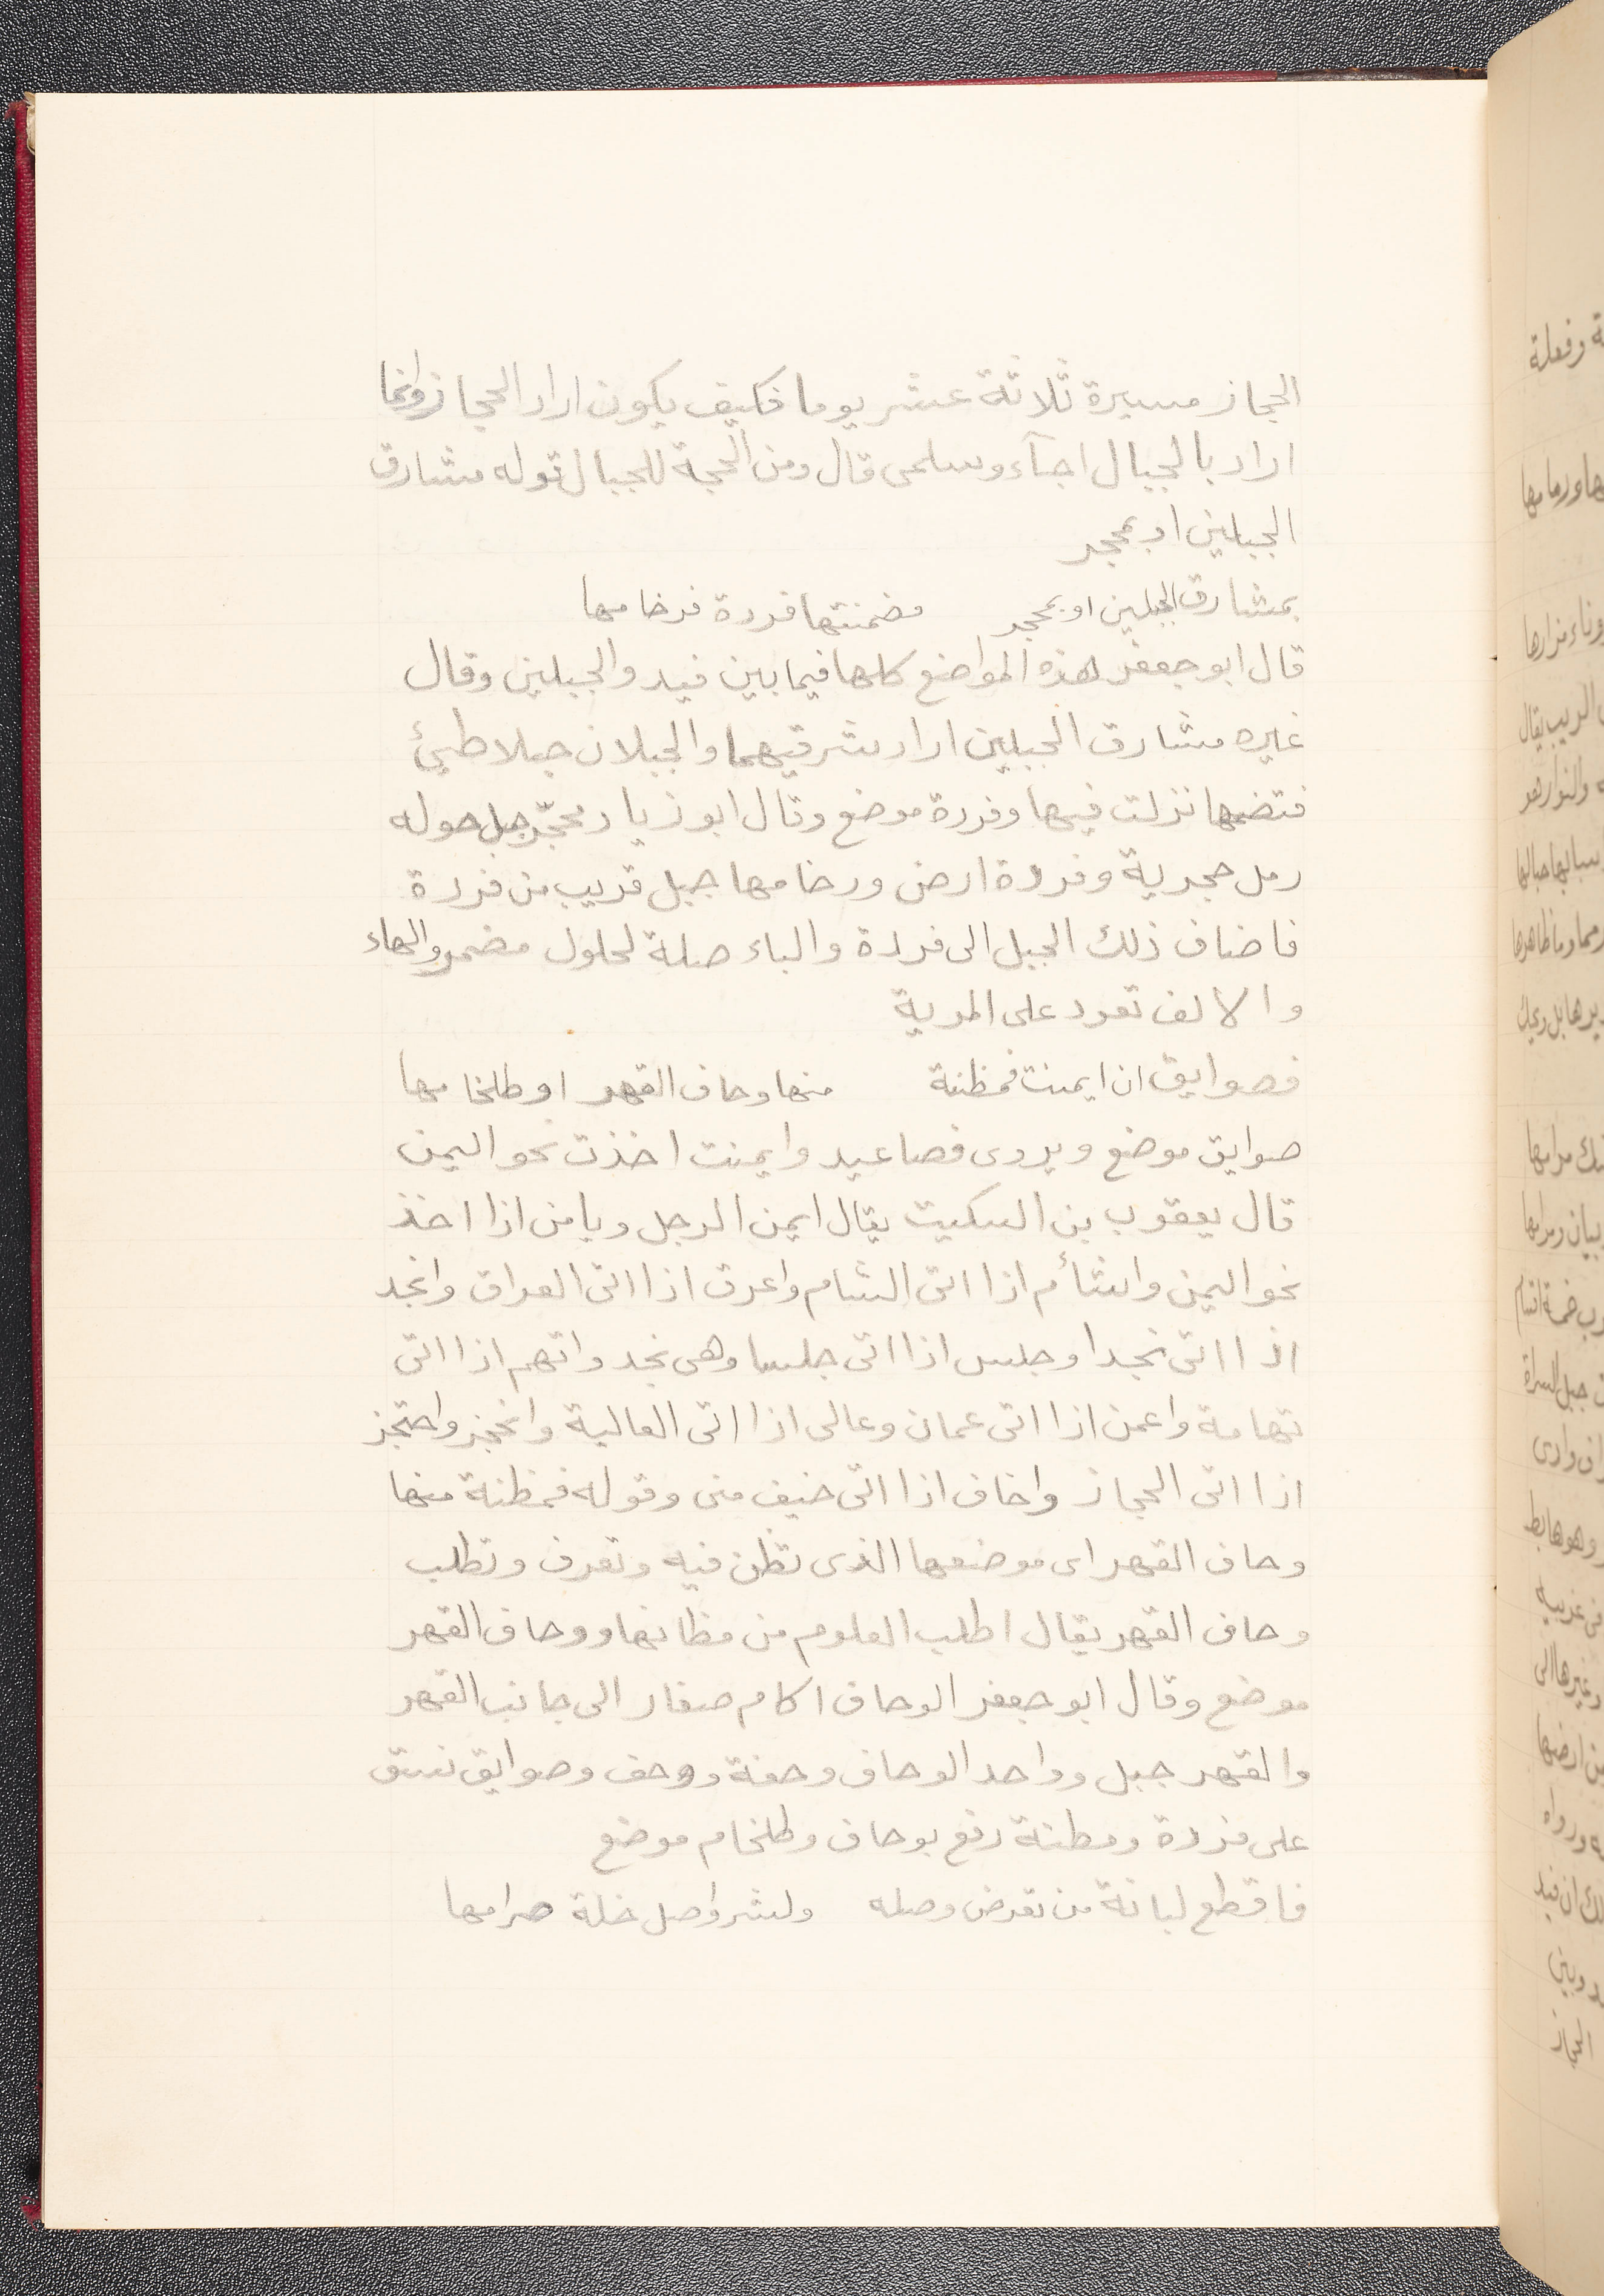 الحجاز مسيرة ثلاثة عشر يوما فكيف يكون اراد الحجاز وانما
اراد بالجبال اجآء وسلمى قال ومن الحجة للجبال قوله مشارق
الجبلين او بمحجر
بمشارق الجبلين او بمحجر فضمنتها فردة فرخامها
قال ابو جعفر هذه المواضع كلها فيما بين فيد والجبلين وقال
غيره مشارق الجبلين اراد شرقيهما والجبلان جبلا طيئ
فتضمها نزلت فيها وفردة موضع وقال ابو زياد محجّر جبل حوله
رمل حجرية وفردة ارض ورخامها جبل قريب من فردة
فاضاف ذلك الجبل الى فردة والباء صلة لحلول مضمر والهاء
والالف تعود على المرية
فصوايق ان ايمنت فمظنة منها وحاف القهر او طلخامها
صوايق موضع ويروى فصاعيد وايمنت اخذت نحو اليمن
قال يعقوب بن السكيت يقال ايمن الرجل ويامن اذا اخذ
نحو اليمن واشأم اذا اتى الشام واعرق اذا اتى العراق وانجد
اذا اتى نجدا وجلس اذا اتى جلسا وهى نجد واتهم اذا اتى
تهامة واعمن اذا اتى عمان وعالى اذا اتى العالية وانحجز واحتجز
اذا اتى الحجاز واخاف اذا اتى خيف منى وقوله فمظنة منها
وحاف القهر اى موضعها الذى تظن فيه وتعرف وتطلب
وحاف القهر يقال اطلب العلوم من مظانها ووحاف القهر
موضع وقال ابو جعفر الوحاف اكام صغار الى جانب القهر
والقهر جبل وواحد الوحاف وحفة ووحف وصوايق نسق
على فردة ومظنة رفع بوحاف وطلخام موضع
فاقطع لبانة من تعرض وصله ولشر واصل خلة صرامها